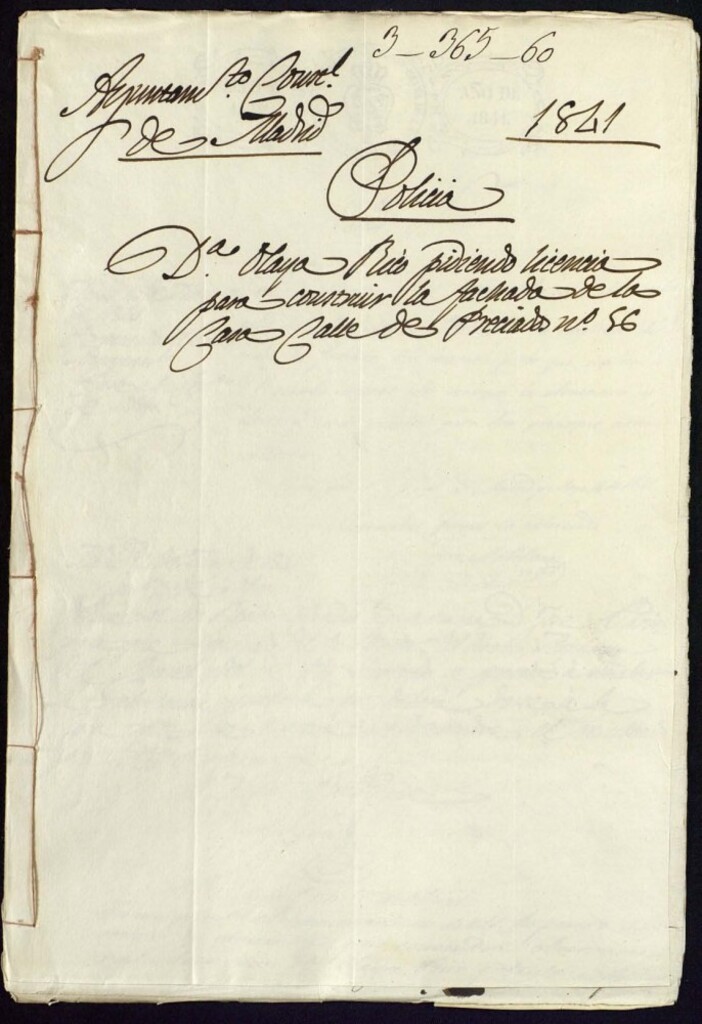 3-365-60
Ayuntam.to Const.l
de Madrid
1841
Policia
D.a Olaya Rico pidiendo licencia
para construir la fachada de la
Casa Calle de Preciados nº 56